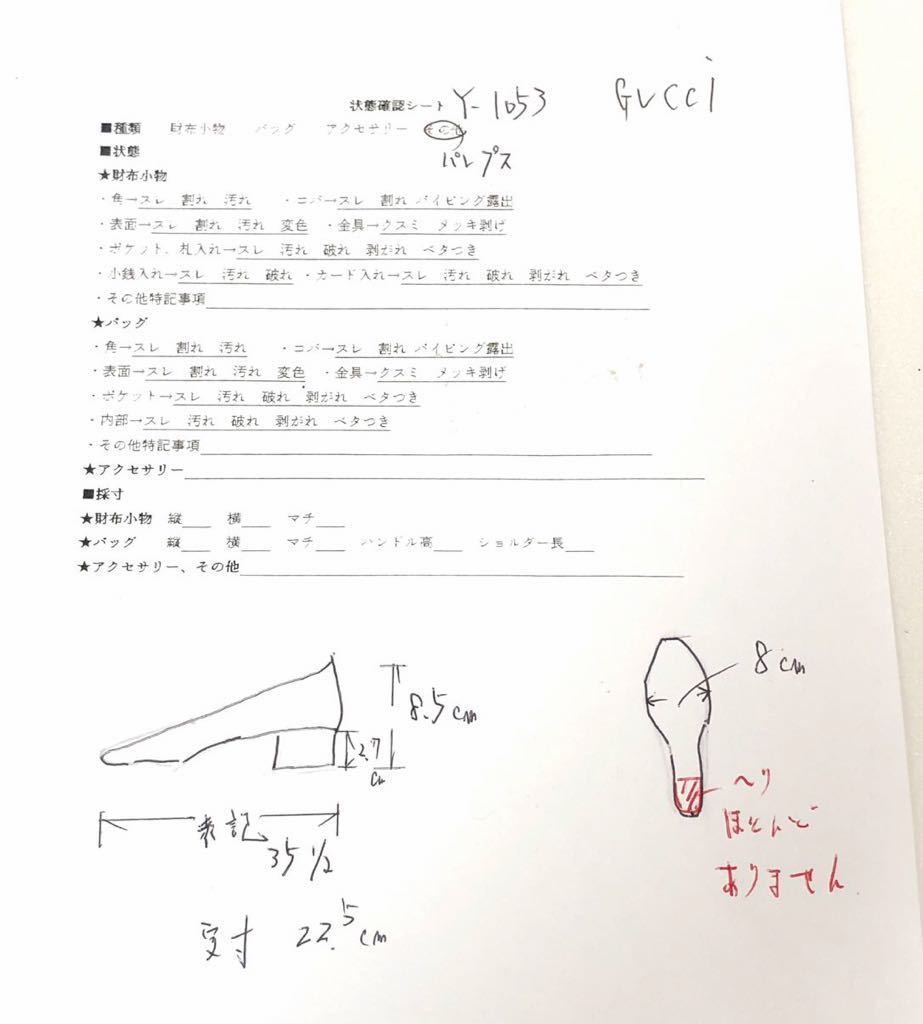 状態確認シート Y-1053 GUCCI
■種類 財布小物 バッグ アクセサリー その他
パンプス
■状態
★財布小物
・角→スレ 割れ 汚れ ・コバ→スレ 割れ パイピング露出
・表面→スレ 割れ 汚れ 変色 ・金具→クスミ メッキ剥げ
・ポケット、札入れ→スレ 汚れ 破れ 剥がれ ベタつき
・小銭入れ→スレ 汚れ 破れ ・カード入れ→スレ 汚れ 破れ 剥がれ ベタつき
・その他特記事項
★バッグ
・角→スレ 割れ 汚れ ・コバ→スレ 割れ パイピング露出
・表面→スレ 割れ 汚れ 変色 ・金具→クスミ メッキ剥げ
・ポケット→スレ 汚れ 破れ 剥がれ ベタつき
・内部→スレ 汚れ 破れ 剥がれ ベタつき
・その他特記事項
★アクセサリー
■採寸
★財布小物 縦 横 マチ
★バッグ 縦 横 マチ ハンドル高 ショルダー長
★アクセサリー、その他
8cm
8.5cm
2.7
cm
ヘリ
ほとんど
ありません
表記
35 1/2
実寸 22.5cm